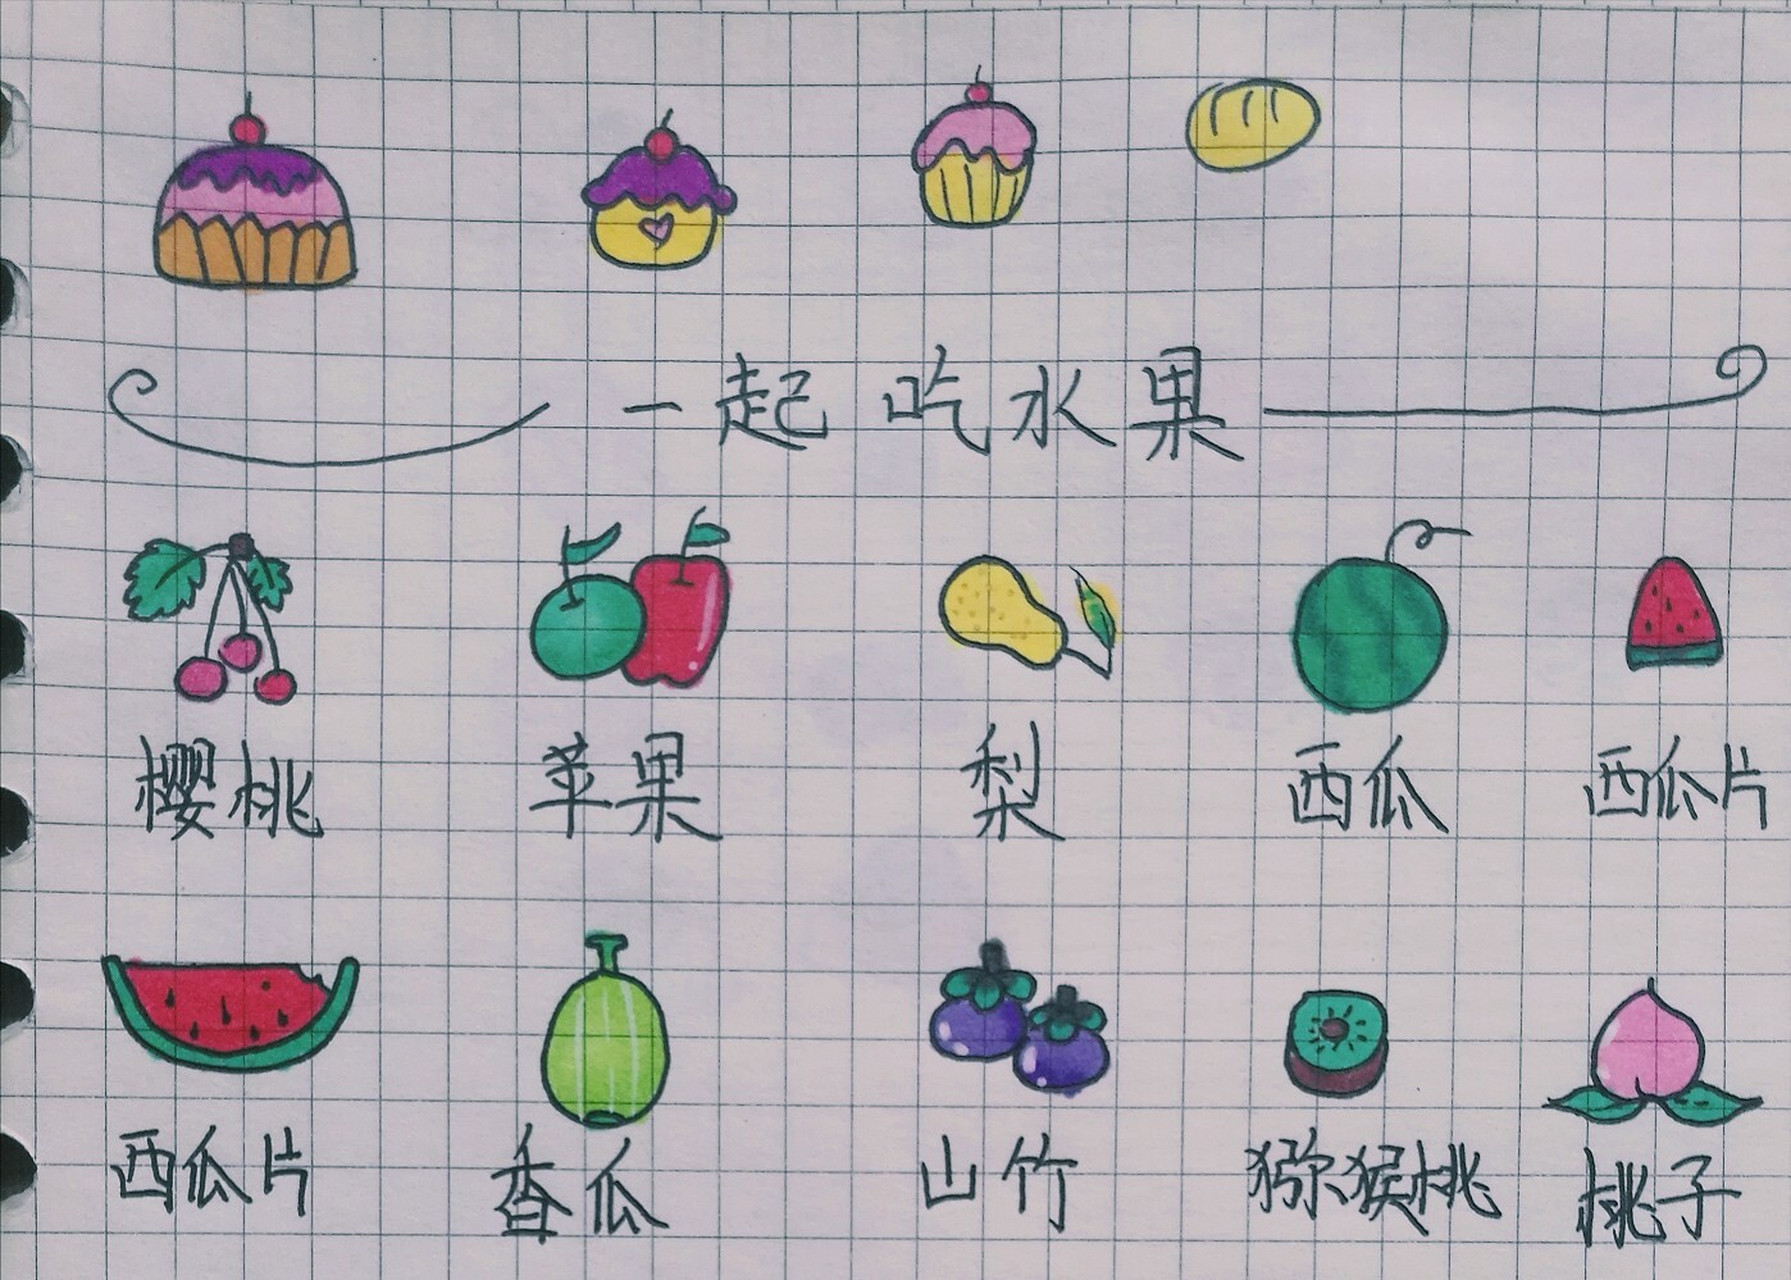 一起吃水果
樱桃 苹果 梨 西瓜 西瓜片
西瓜片 香瓜 山竹 猕猴桃 桃子